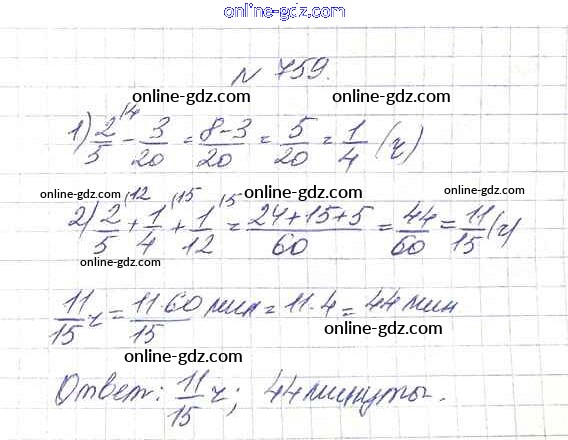 online-gdz.com
№ 759.
online-gdz.com online-gdz.com
1) 2/5 \4 - 3/20 = (8-3)/20 = 5/20 = 1/4 (ч)
online-gdz.com online-gdz.com online-gdz.com
2) 2/5 \12 + 1/4 \15 + 1/12 \5 = (24+15+5)/60 = 44/60 = 11/15 (ч)
online-gdz.com
11/15 ч = (11·60)/15 мин = 11·4 = 44 мин
online-gdz.com
online-gdz.com
Ответ: 11/15 ч; 44 минуты.
online-gdz.com
online-gdz.com